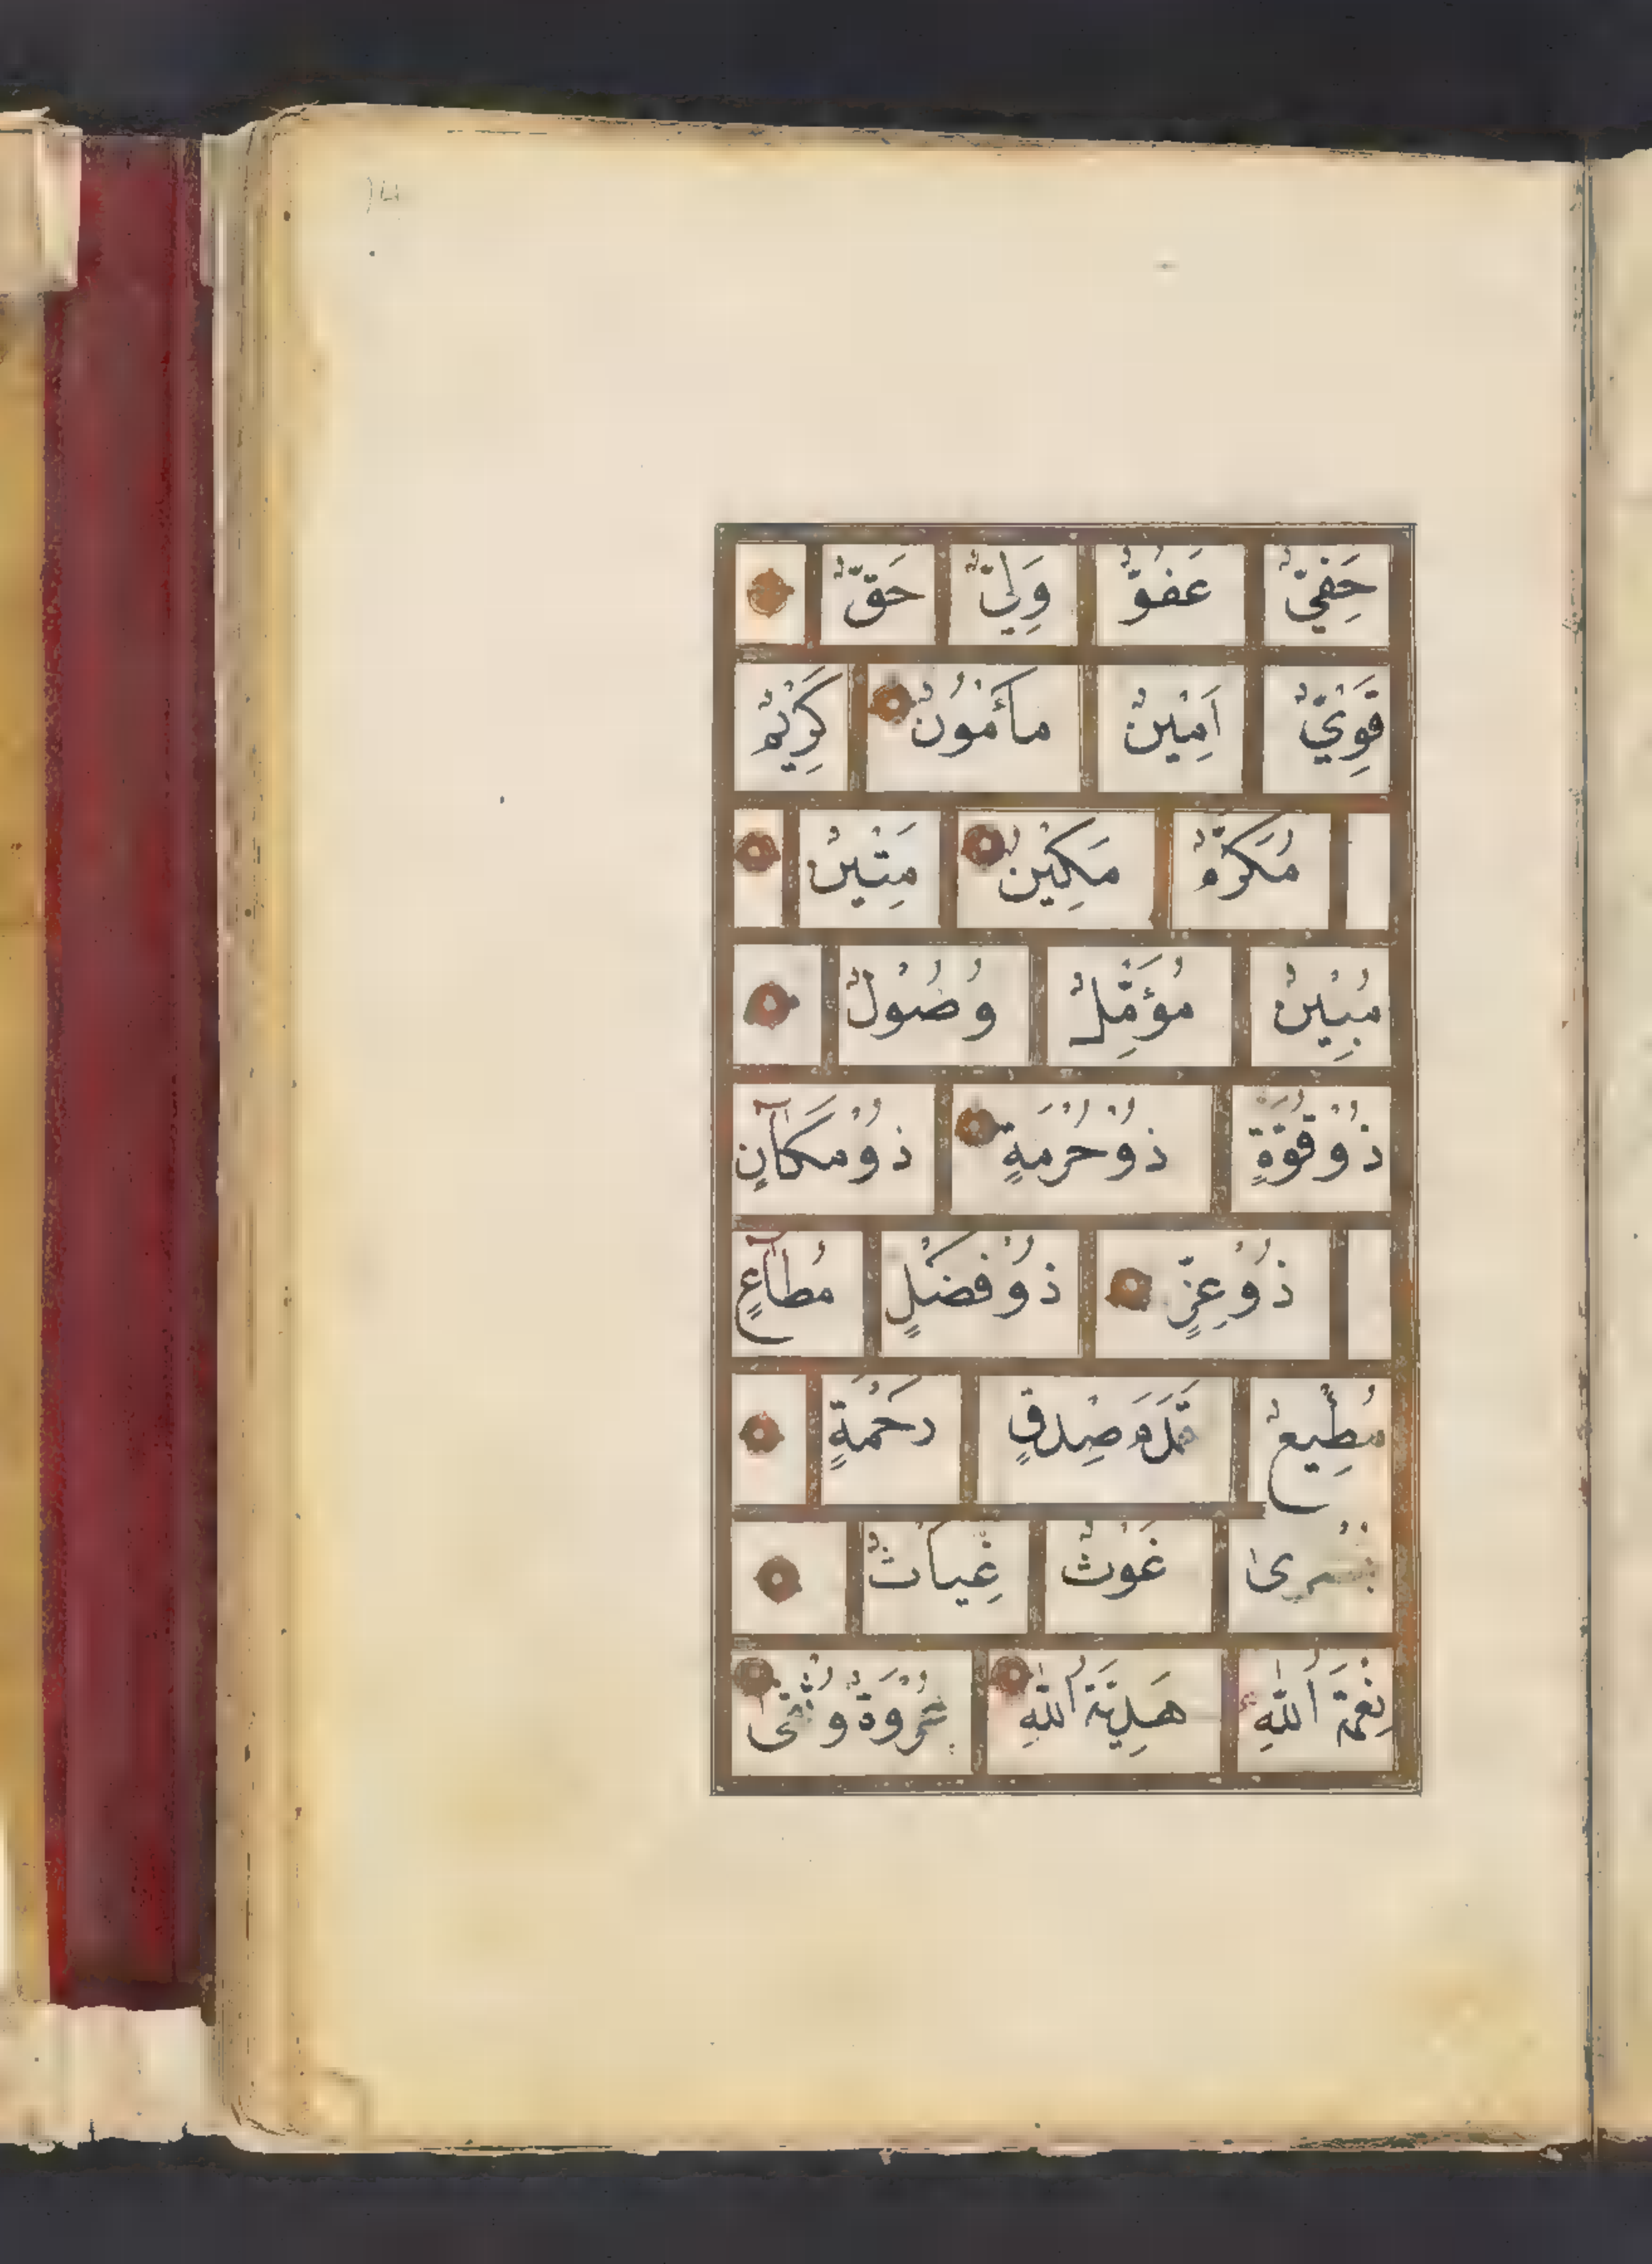 حَفِيٌّ عَفُوٌّ وَلِيٌّ حَقٌّ
قَوِيٌّ اَمِيْنٌ مأْمُوْنٌ كَرِيْمٌ
مُكَرَّمٌ مَكِيْنٌ مَتِيْنٌ
مُبِيْنٌ مُؤَمِّلٌ وُصُوْلٌ
ذُوْ قُوَّةٍ ذُوْ حُرْمَةٍ ذُوْ مَكَآنٍ
ذُوْ عِزٍّ ذُوْ فَضْلٍ مُطَآعٍ
مُطِيْعٌ قَدَمَ صِدْقٍ رَحْمَةٍ
بُشْرىٰ غَوْثٌ غِيَاثٌ
نِعْمَةُ اللّٰهِ هَدِيَّةُ اللّٰهِ عُرْوَةٌ وُثْقىٰ